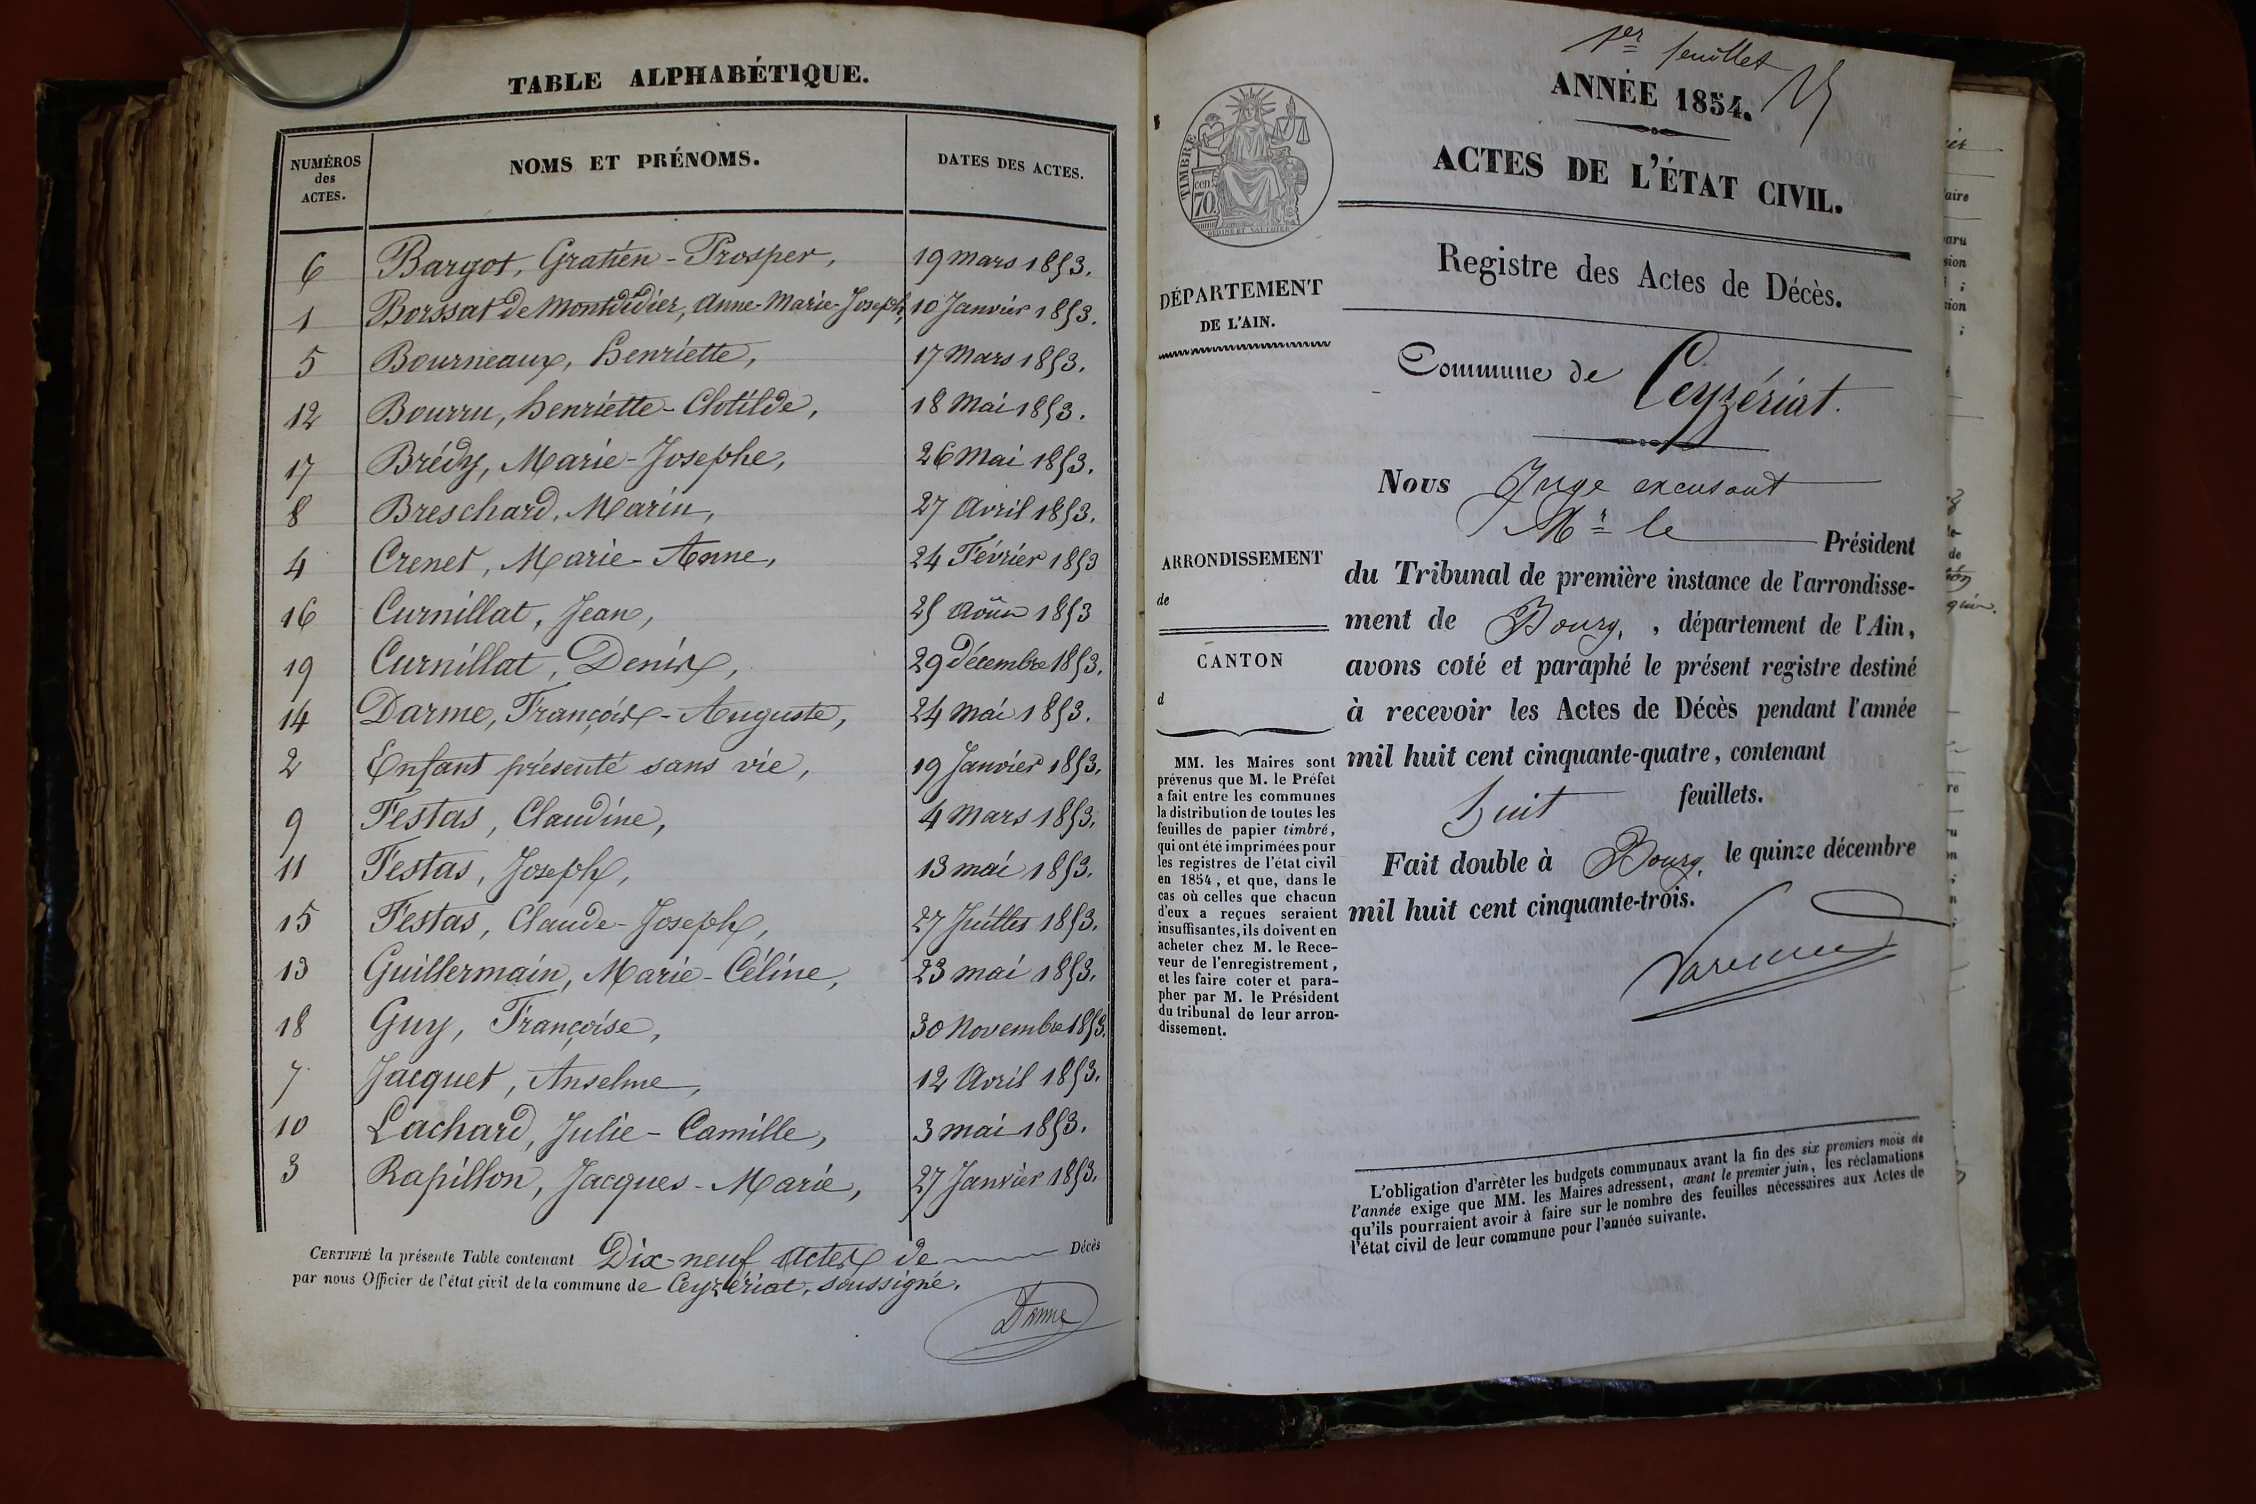 TABLE ALPHABÉTIQUE.
NUMÉROS des ACTES. NOMS ET PRÉNOMS. DATES DES ACTES.
6 Bargot, Gratien-Prosper, 19 mars 1853.
1 Borssat de Montdidier, Anne-Marie-Joseph, 10 Janvier 1853.
5 Bourneaux, henriette, 17 Mars 1853.
12 Bourru, henriette-Clotilde, 18 Mai 1853.
17 Brédy, Marie-Josephe, 26 Mai 1853.
8 Breschard, Marin, 27 Avril 1853.
4 Crenet, Marie-Anne, 24 Février 1853
16 Curnillat, Jean, 25 Août 1853
19 Curnillat, Denis, 29 décembre 1853.
14 Darme, François-Auguste, 24 mai 1853.
2 Enfant présenté sans vie, 19 Janvier 1853.
9 Festas, Claudine, 4 Mars 1853.
11 Festas, Joseph, 13 mai 1853.
15 Festas, Claude-Joseph, 27 Juillet 1853.
13 Guillermain, Marie-Céline, 23 mai 1853.
18 Guy, Françoise, 30 Novembre 1853.
7 Jacquet, Anselme, 12 Avril 1853.
10 Lachard, Julie-Camille, 3 mai 1853.
3 Rapillon, Jacques-Marie, 27 Janvier 1853.
CERTIFIÉ la présente Table contenant Dix-neuf actes de Décès
par nous Officier de l'état civil de la commune de Ceyzériat, soussigné.
Darme
1er feuillet
ANNÉE 1854.
ACTES DE L'ÉTAT CIVIL.
Registre des Actes de Décès.
Commune de Ceyzériat.
TIMBRE
cen.
70.
DÉPARTEMENT
DE L'AIN.
ARRONDISSEMENT
de
CANTON
d
MM. les Maires sont
prévenus que M. le Préfet
a fait entre les communes
la distribution de toutes les
feuilles de papier timbré,
qui ont été imprimées pour
les registres de l'état civil
en 1854, et que, dans le
cas où celles que chacun
d'eux a reçues seraient
insuffisantes, ils doivent en
acheter chez M. le Rece-
veur de l'enregistrement,
et les faire coter et para-
pher par M. le Président
du tribunal de leur arron-
dissement.
Nous Juge excusant
Mr le Président
du Tribunal de première instance de l'arrondisse-
ment de Bourg, , département de l'Ain,
avons coté et paraphé le présent registre destiné
à recevoir les Actes de Décès pendant l'année
mil huit cent cinquante-quatre, contenant
huit feuillets.
Fait double à Bourg, le quinze décembre
mil huit cent cinquante-trois.
L'obligation d'arrêter les budgets communaux avant la fin des six premiers mois de
l'année exige que MM. les Maires adressent, avant le premier juin, les réclamations
qu'ils pourraient avoir à faire sur le nombre des feuilles nécessaires aux Actes de
l'état civil de leur commune pour l'année suivante.